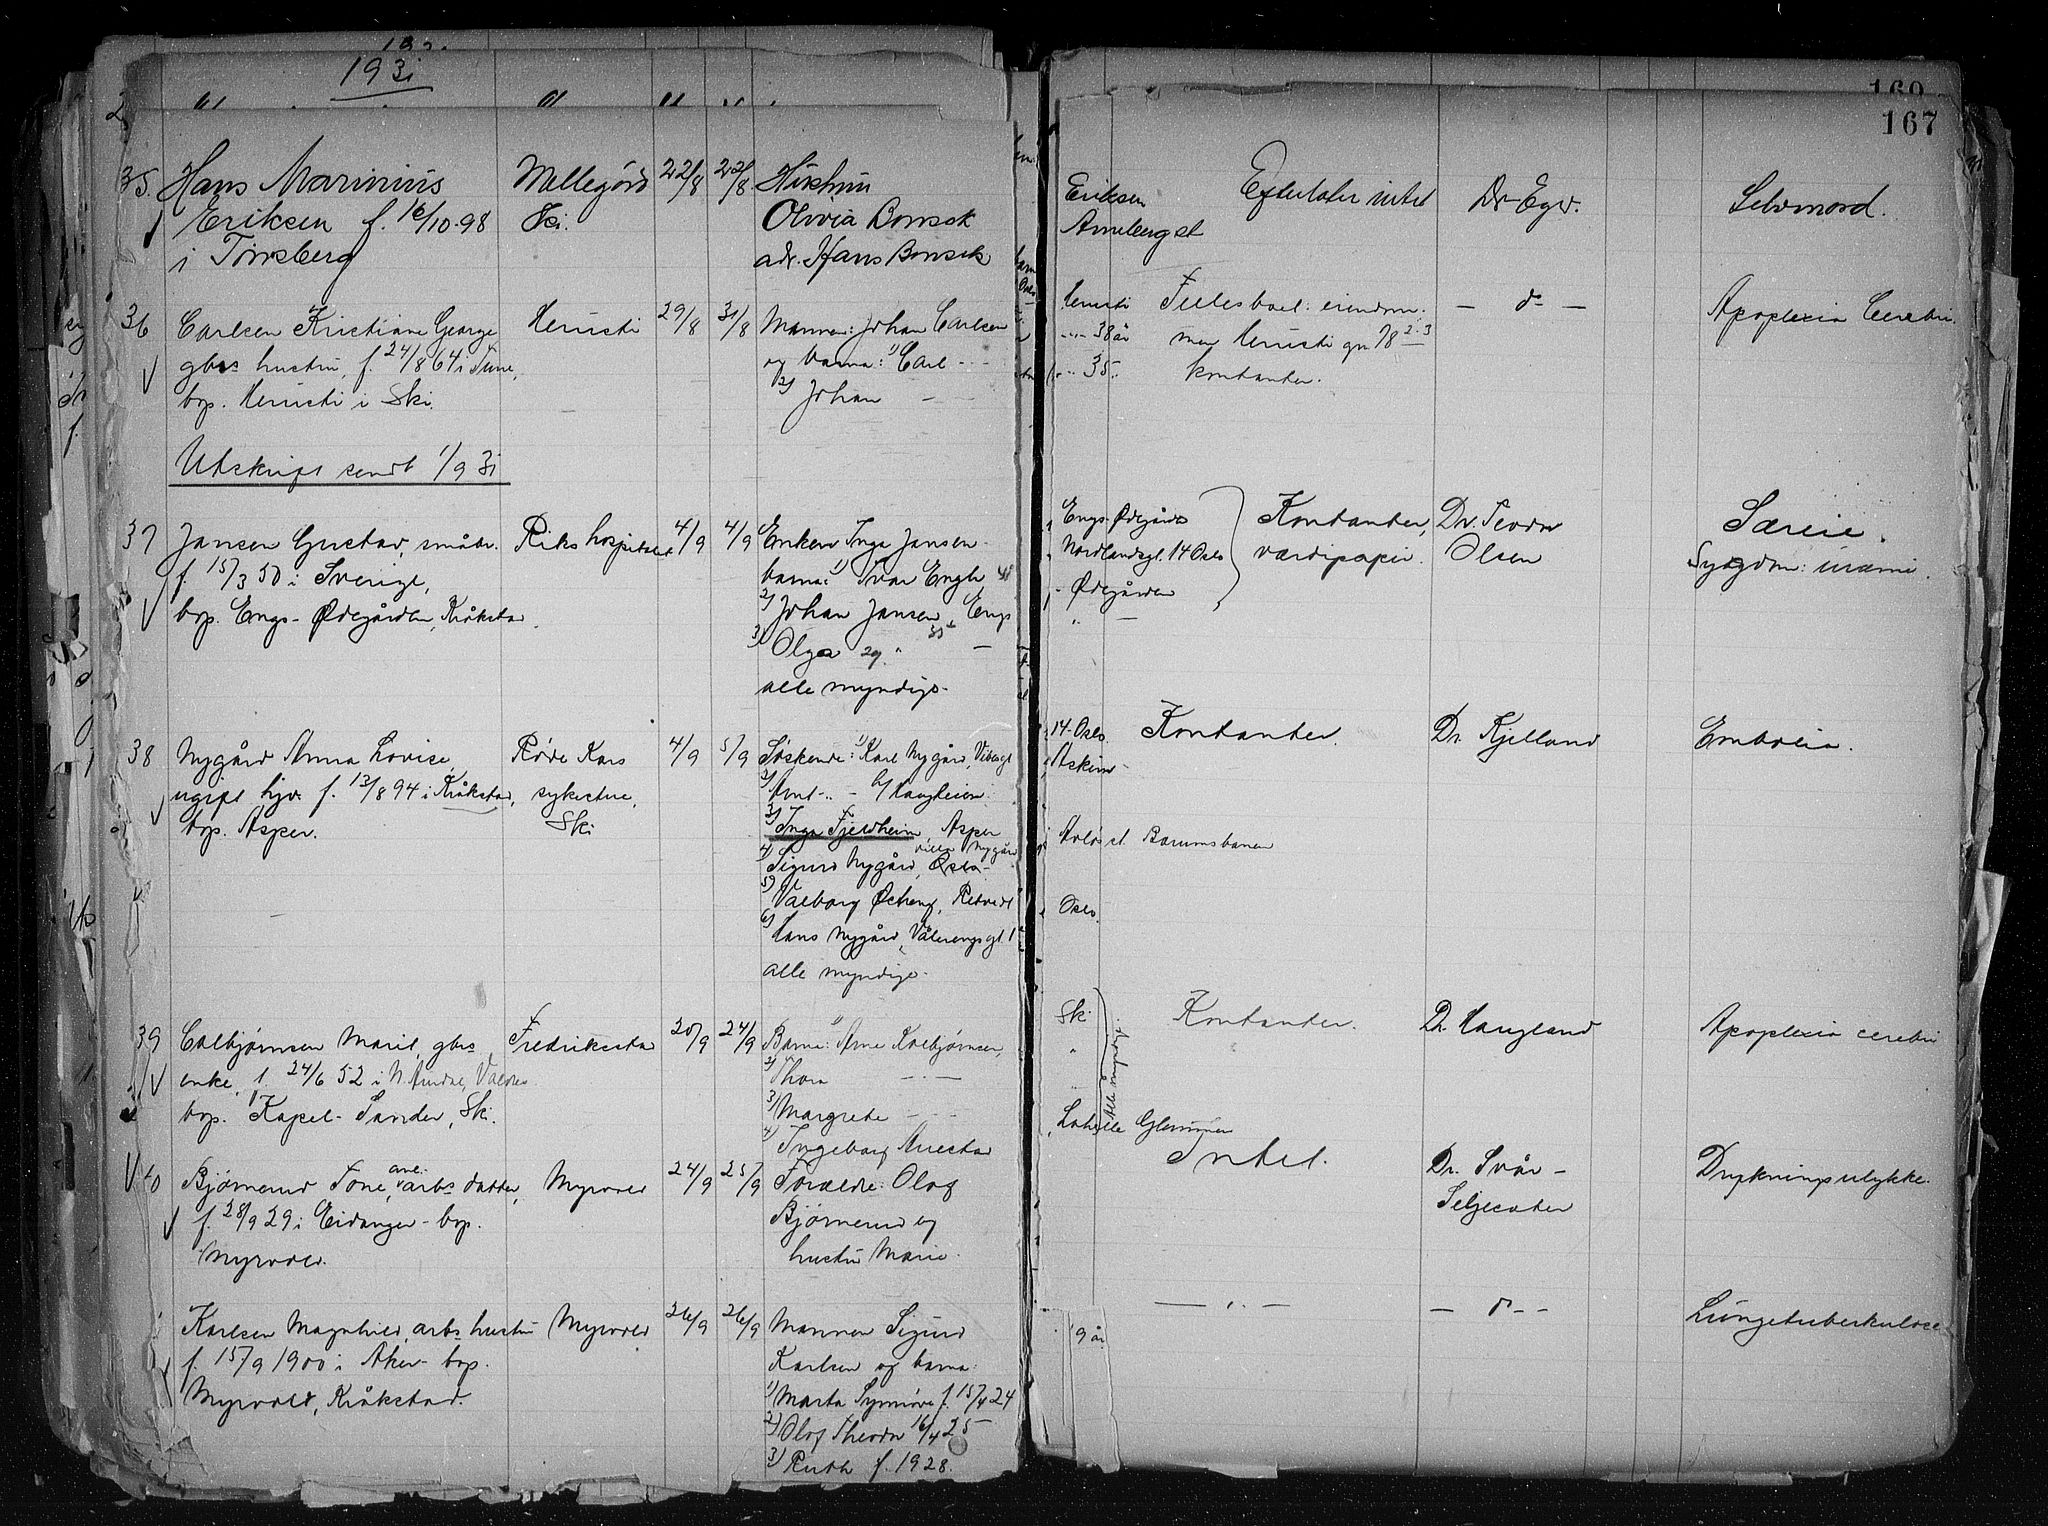 1931
169
167
35. Hans Marinius Mellegård 22/8 22/8 Hustru
Eriksen f. 16/10-98 Ski. Olivia Bonsok
i Tønsberg adr. Hans Bonsok
Eriksen Efterlater intet Dr. Eger. Selvmord.
Annebergst
36 Carlsen Kristiane George Herusti 29/8 31/8 Mannen: Johan Carlsen
gbrs hustru, f. 24/8 64 i Tune, og barna: 1) Carl - -
bop. Herusti i Ski. 2) Johan -
Herusti Fellesboet: eiendom: - do - Apoplexia Cerebri.
38 år men Herusti gn 78 2.3
35 kontanter.
Utskrift sendt 1/9 31
37 Jansen Gustav, småbr. Rikshospitalet 4/9 4/9 Enken Inga Jansen
f. 15/3 50 i Sverige, barna: 1) Ivar Engh
bop. Engs-Ødegården, Kråkstad. 2) Johan Jansen, Engs
3) Olga 29 " -
alle myndige.
Engs-Ødegården Kontanter, Dr. Teodor Særeie.
Nordlandsgt. 14 Oslo værdipapir. Olsen Sygdom: uræmi.
- Ødegården
" -
38 Nygård Anna Lovise, Røde Kors 4/9 5/9 Søskende: 1) Karl Nygård, Vibesgt
ugift hjv. f. 13/8 94 i Kråkstad, sykestue,
bop. Asper. Ski
2) - " - b/ Haugheim
3) Inga Fjeldheim, Asper
villa Nygård
4) Sigurd Nygård, Oslo-
5) Valborg Østeng, Retvedt
6) Hans Nygård, Vålerengsgt 1
alle myndige.
14-Oslo. Kontanter. Dr. Kjelland Embolia.
Askim-
Avløs st. Bærumsbanen
Oslo.
39 Colbjørnsen Marit, gbrs Fredrikstad 20/9 24/9 Barna: 1) Arne Kolbjørnsen,
enke, f. 24/6 52 i N. Aurdal, Valdres 2) Thora - -
bop. Kapel-Sander, Ski. 3) Margrete - -
4) Ingeborg
Ski Kontanter. Dr. Haugland Apoplexia cerebri
"
Alle myndige.
Lahelle Glemmen
40 Bjørnerud Tone, arbs datter, Myrvold 24/9 25/9 Forældre: Olof
f. 28/9 29 i Eidanger - bop. Bjørnerud og
Myrvold. hustru Marie.
Intet. Dr. Svår- Drukningsulykke.
Seljesæter
Karlsen Magnhild, arbs hustru Myrvold 26/9 26/9 Mannen Sigurd
f. 15/9 1900 i Aker - bop. Karlsen og barna:
Myrvold, Kråkstad. 1) Marta Synnøve f. 15/4 24
2) Olof Theodor 16/4 25
3) Ruth f. 1928.
9 år - " - - do - - Lungetuberkulose